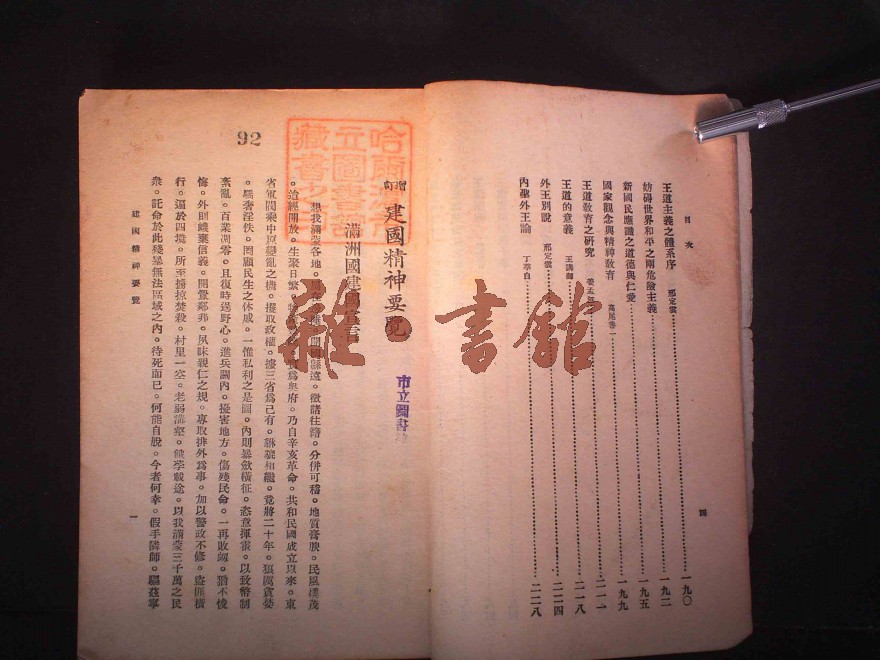 目次
王道主義之體系序 邢定雲 一九〇
妨碍世界和平之兩危險主義 一九二
新國民應識之道德與仁愛 一九五
國家觀念與精神敎育 高尾善一 一九九
王道敎育之硏究 二一一
王道的意義 二一八
外王別說 邢定雲 二二四
內聖外王論 二二八
四
雜·書館
哈爾濱市立圖書館藏書之
市立圖書
92
增訂 建國精神要覽
滿洲國建國宣言
想我滿蒙各地。開國緜遠。徵諸往籍。分併可稽。地質膏腴。民風樸茂
。迨經開放。生聚日繁。爲奧府。乃自辛亥革命。共和民國成立以來。東
省軍閥乘中原變亂之機。攫取政權。據三省爲己有。貔貅相繼。竟將二十年。狠厲貪婪
。驕奢淫佚。罔顧民生之休戚。一惟私利之是圖。內則暴斂橫征。恣意揮霍。以致幣制
紊亂。百業凋零。且復時逞野心。進兵關內。擾害地方。傷殘民命。一再敗衂。猶不悛
悔。外則蔑棄信義。開釁鄰邦。夙昧親仁之規。專取排外爲事。加以警政不修。盜匪橫
行。遍於四境。所至擄掠焚殺。村里一空。老弱溝壑。餓莩載途。以我滿蒙三千萬之民
衆。託命於此殘暴無法區域之內。待死而已。何能自脫。今者何幸。假手隣師。驅茲
建國精神要覽
一